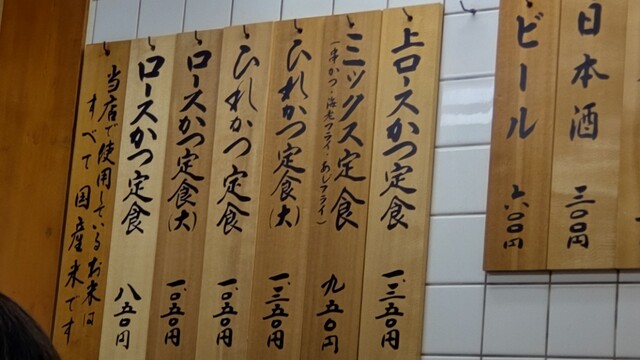 日本酒 三〇〇円
ビール 六〇〇円
上ロースかつ定食 一、三五〇円
ミックス定食 九五〇円
(串かつ・海老フライ・あじフライ)
ひれかつ定食(大) 一、三五〇円
ひれかつ定食 一、〇五〇円
ロースかつ定食(大) 一、〇五〇円
ロースかつ定食 八五〇円
当店で使用しているお米は
すべて国産米です